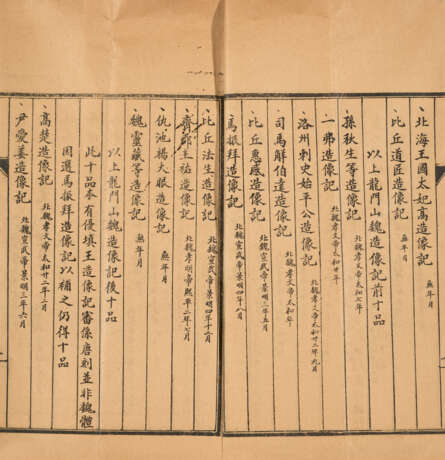 、北海王國太妃高造像記 無年月
、比丘道匠造像記 無年月
以上龍門山魏造像記前十品
、孫秋生等造像記 北魏孝文帝太和七年
、一弗造像記 北魏孝文帝太和廿年
、洛州刺史始平公造像記 北魏孝文帝太和廿二年九月
、司馬解伯達造像記 北魏孝文帝太和年
、比丘惠感造像記 北魏宣武帝景明三年五月
、馬振拜造像記 北魏宣武帝景明四年八月
、比丘法生造像記 北魏宣武帝景明四年十二月
、齊郡王祐造像記 北魏孝明帝熙平二年七月
、仇池楊大眼造像記 無年月
、魏靈藏等造像記 無年月
以上龍門山魏造像記後十品
此十品本有優填王造像記審係唐刻並非魏體
因選馬振拜造像記以補之仍得十品
、高楚造像記 北魏孝文帝太和廿二年二月
、尹愛姜造像記 北魏宣武帝景明三年六月